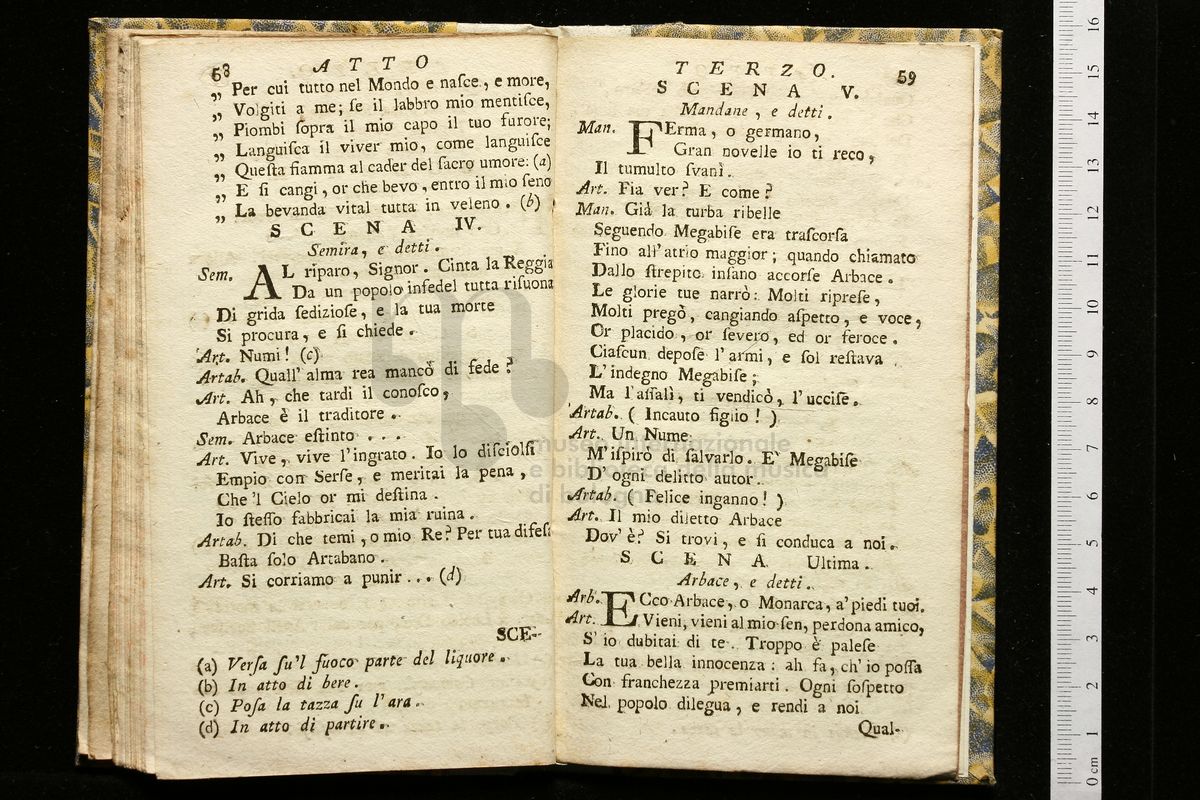 68 ATTO
„ Per cui tutto nel Mondo e naſce, e more,
„ Volgiti a me; ſe il labbro mio mentiſce,
„ Piombi ſopra il mio capo il tuo furore;
„ Languiſca il viver mio, come languiſce
„ Queſta fiamma al cader del ſacro umore: (a)
„ E ſi cangi, or che bevo, entro il mio ſeno
„ La bevanda vital tutta in veleno. (b)
SCENA IV.
Semira, e detti.
Sem. AL riparo, Signor. Cinta la Reggia
Da un popolo infedel tutta riſuona
Di grida ſedizioſe, e la tua morte
Si procura, e ſi chiede.
Art. Numi! (c)
Artab. Quall' alma rea mancò di fede?
Art. Ah, che tardi il conoſco,
Arbace è il traditore.
Sem. Arbace eſtinto . . .
Art. Vive, vive l'ingrato. Io lo diſciolſi
Empio con Serſe, e meritai la pena,
Che 'l Cielo or mi deſtina.
Io ſteſſo fabbricai la mia ruina.
Artab. Di che temi, o mio Re? Per tua difeſa
Baſta ſolo Artabano.
Art. Si corriamo a punir . . . (d)
SCE-
(a) Verſa ſu'l fuoco parte del liquore.
(b) In atto di bere.
(c) Poſa la tazza ſu l'ara.
(d) In atto di partire.
TERZO. 59
SCENA V.
Mandane, e detti.
Man. FErma, o germano,
Gran novelle io ti reco,
Il tumulto ſvanì.
Art. Fia ver? E come?
Man. Già la turba ribelle
Seguendo Megabiſe era traſcorſa
Fino all' atrio maggior; quando chiamato
Dallo ſtrepito inſano accorſe Arbace.
Le glorie tue narrò: Molti ripreſe,
Molti pregò, cangiando aſpetto, e voce,
Or placido, or ſevero, ed or feroce.
Ciaſcun depoſe l' armi, e ſol reſtava
L' indegno Megabiſe;
Ma l'aſſalì, ti vendicò, l'ucciſe.
Artab. ( Incauto figlio! )
Art. Un Nume
M'iſpirò di ſalvarlo. E' Megabiſe
D' ogni delitto autor.
Artab. ( Felice inganno! )
Art. Il mio diletto Arbace
Dov' è? Si trovi, e ſi conduca a noi.
SCENA Ultima.
Arbace, e detti.
Arb. ECco Arbace, o Monarca, a' piedi tuoi.
Art. Vieni, vieni al mio ſen, perdona amico,
S' io dubitai di te. Troppo è paleſe
La tua bella innocenza: ah fa, ch' io poſſa
Con franchezza premiarti. Ogni ſoſpetto
Nel popolo dilegua, e rendi a noi
Qual-
museo internazionale
e biblioteca della musica
di bologna
0 cm 1 2 3 4 5 6 7 8 9 10 11 12 13 14 15 16